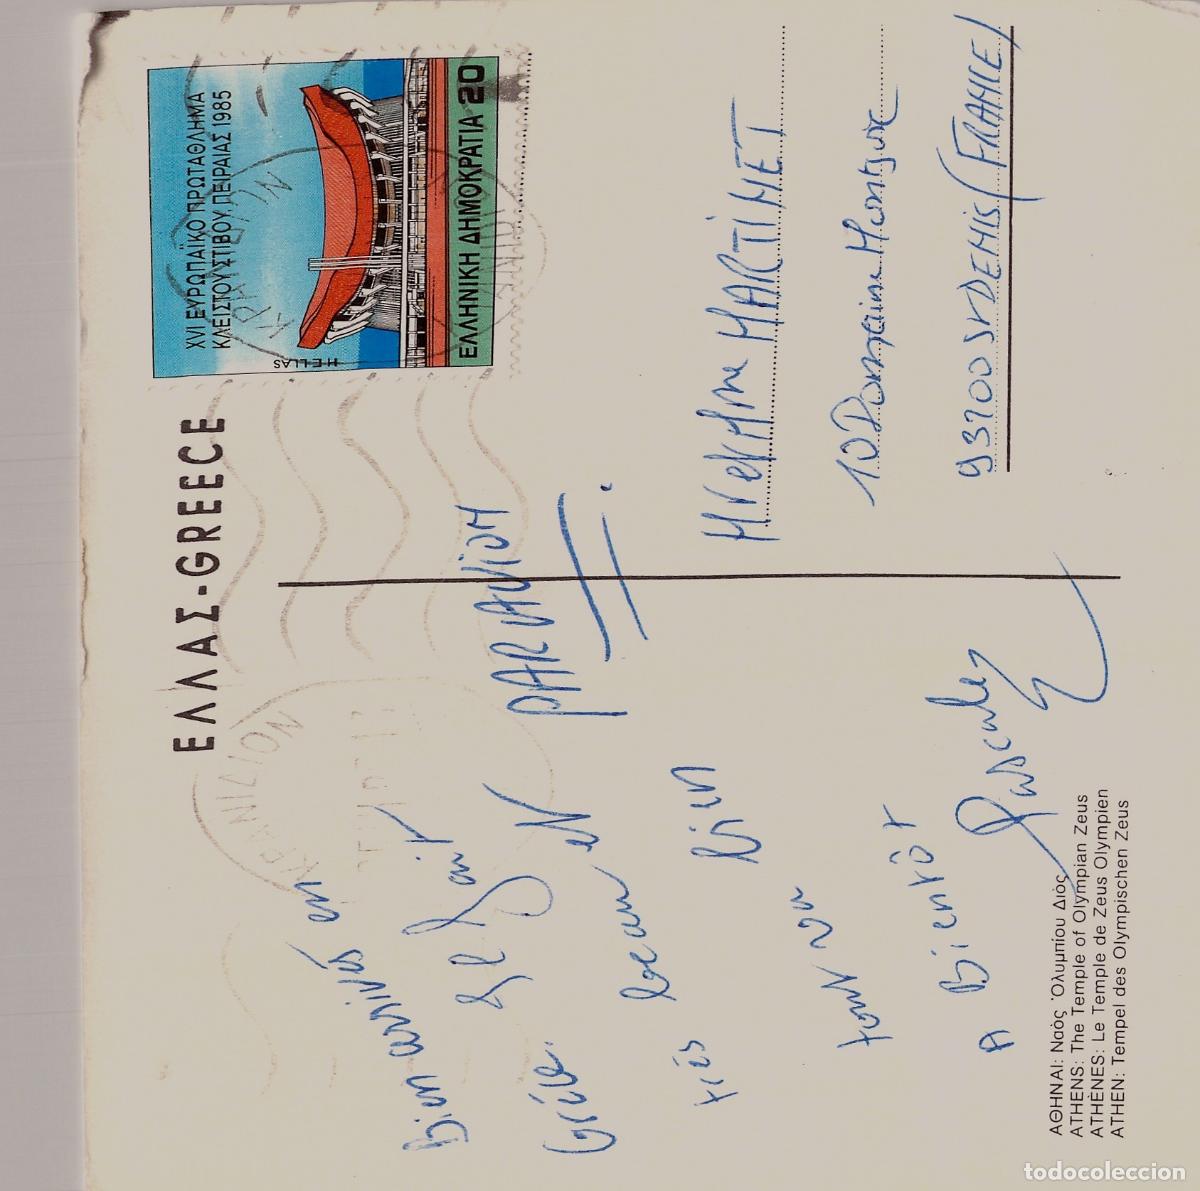 ΕΛΛΑΣ-GREECE
XVI ΕΥΡΩΠΑΪΚΟ ΠΡΩΤΑΘΛΗΜΑ
ΚΛΕΙΣΤΟΥ ΣΤΙΒΟΥ ΠΕΙΡΑΙΑΣ 1985
HELLAS
ΕΛΛΗΝΙΚΗ ΔΗΜΟΚΡΑΤΙΑ 20
ΚΡΑΝΙΔΙΟΝ
Bien arrivés en
Grèce. Il fait
très beau et
tout va bien
A Bientôt
Pascale
PAR AVION
MARTINET
10 Domaine
93200 St DENIS (FRANCE)
ΑΘΗΝΑΙ: Ναός Ὀλυμπίου Διός
ATHENS: The Temple of Olympian Zeus
ATHÈNES: Le Temple de Zeus Olympien
ATHEN: Tempel des Olympischen Zeus
todocoleccion